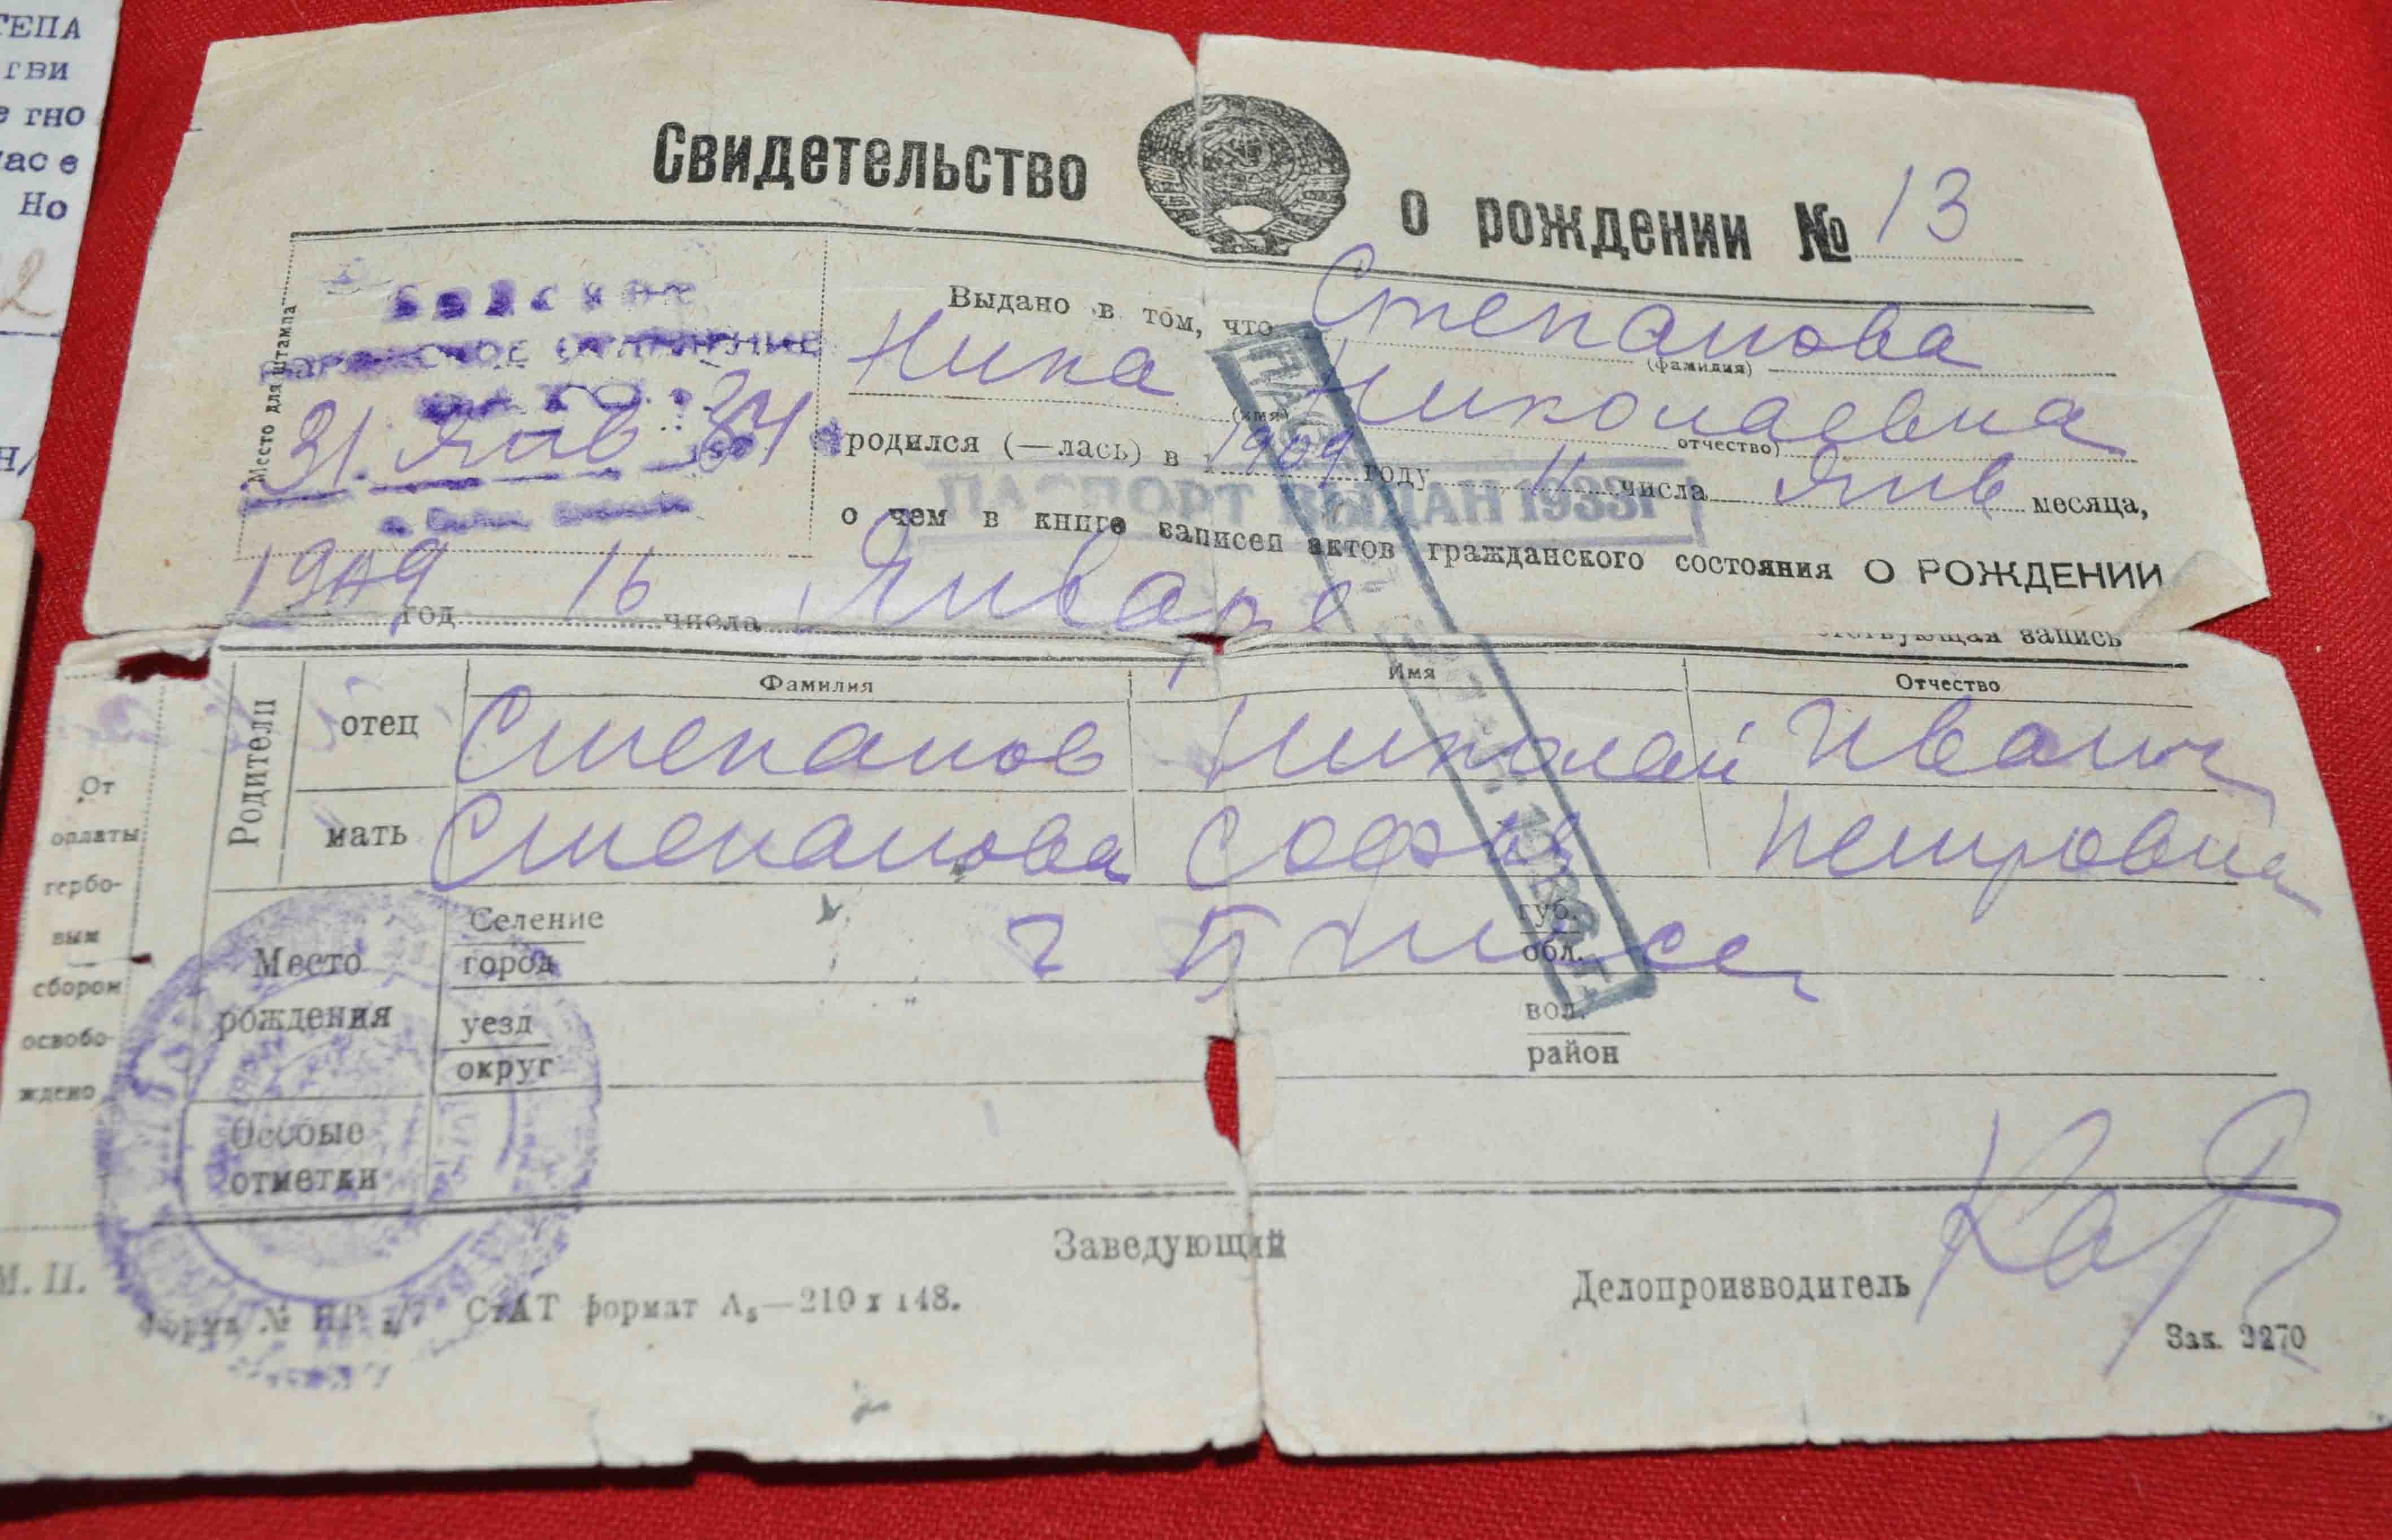 ТЕПА
гви
гно
Но
Свидетельство о рождении № 13
Место для штампа
31. Янв
Выдано в том, что Степанова
(фамилия)
Нина Николаевна
(имя) отчество)
родился (—лась) в 1909 году 11 числа Янв месяца,
ПАСПОРТ ВЫДАН 1933г
о чем в книге записей актов гражданского состояния О РОЖДЕНИИ
1909 год 16 числа Января
запись
Фамилия Имя Отчество
Родители
отец Степанов Николай Иванич
мать Степанова София Петровна
От
оплаты
гербо-
вым
сбором
освобо-
ждено
Место рождения
Селение губ.
город г обл.
уезд вол.
округ район
Особые
отметки
Заведующий
Делопроизводитель
М. П.
Форма № НР 1/7 СтАТ формат А₅—210 х 148.
Зак. 2270